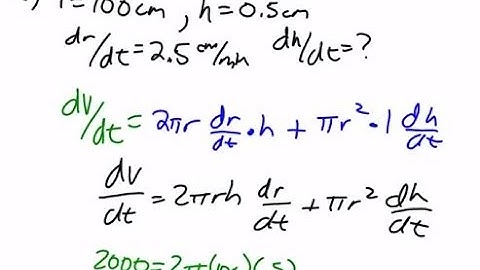 r=100cm, h=0.5cm
dr/dt=2.5 cm/min dh/dt=?
dv/dt=2πr dr/dt·h+πr²·1 dh/dt
dv/dt=2πrh dr/dt+πr² dh/dt
2000=2π(100)(.5)